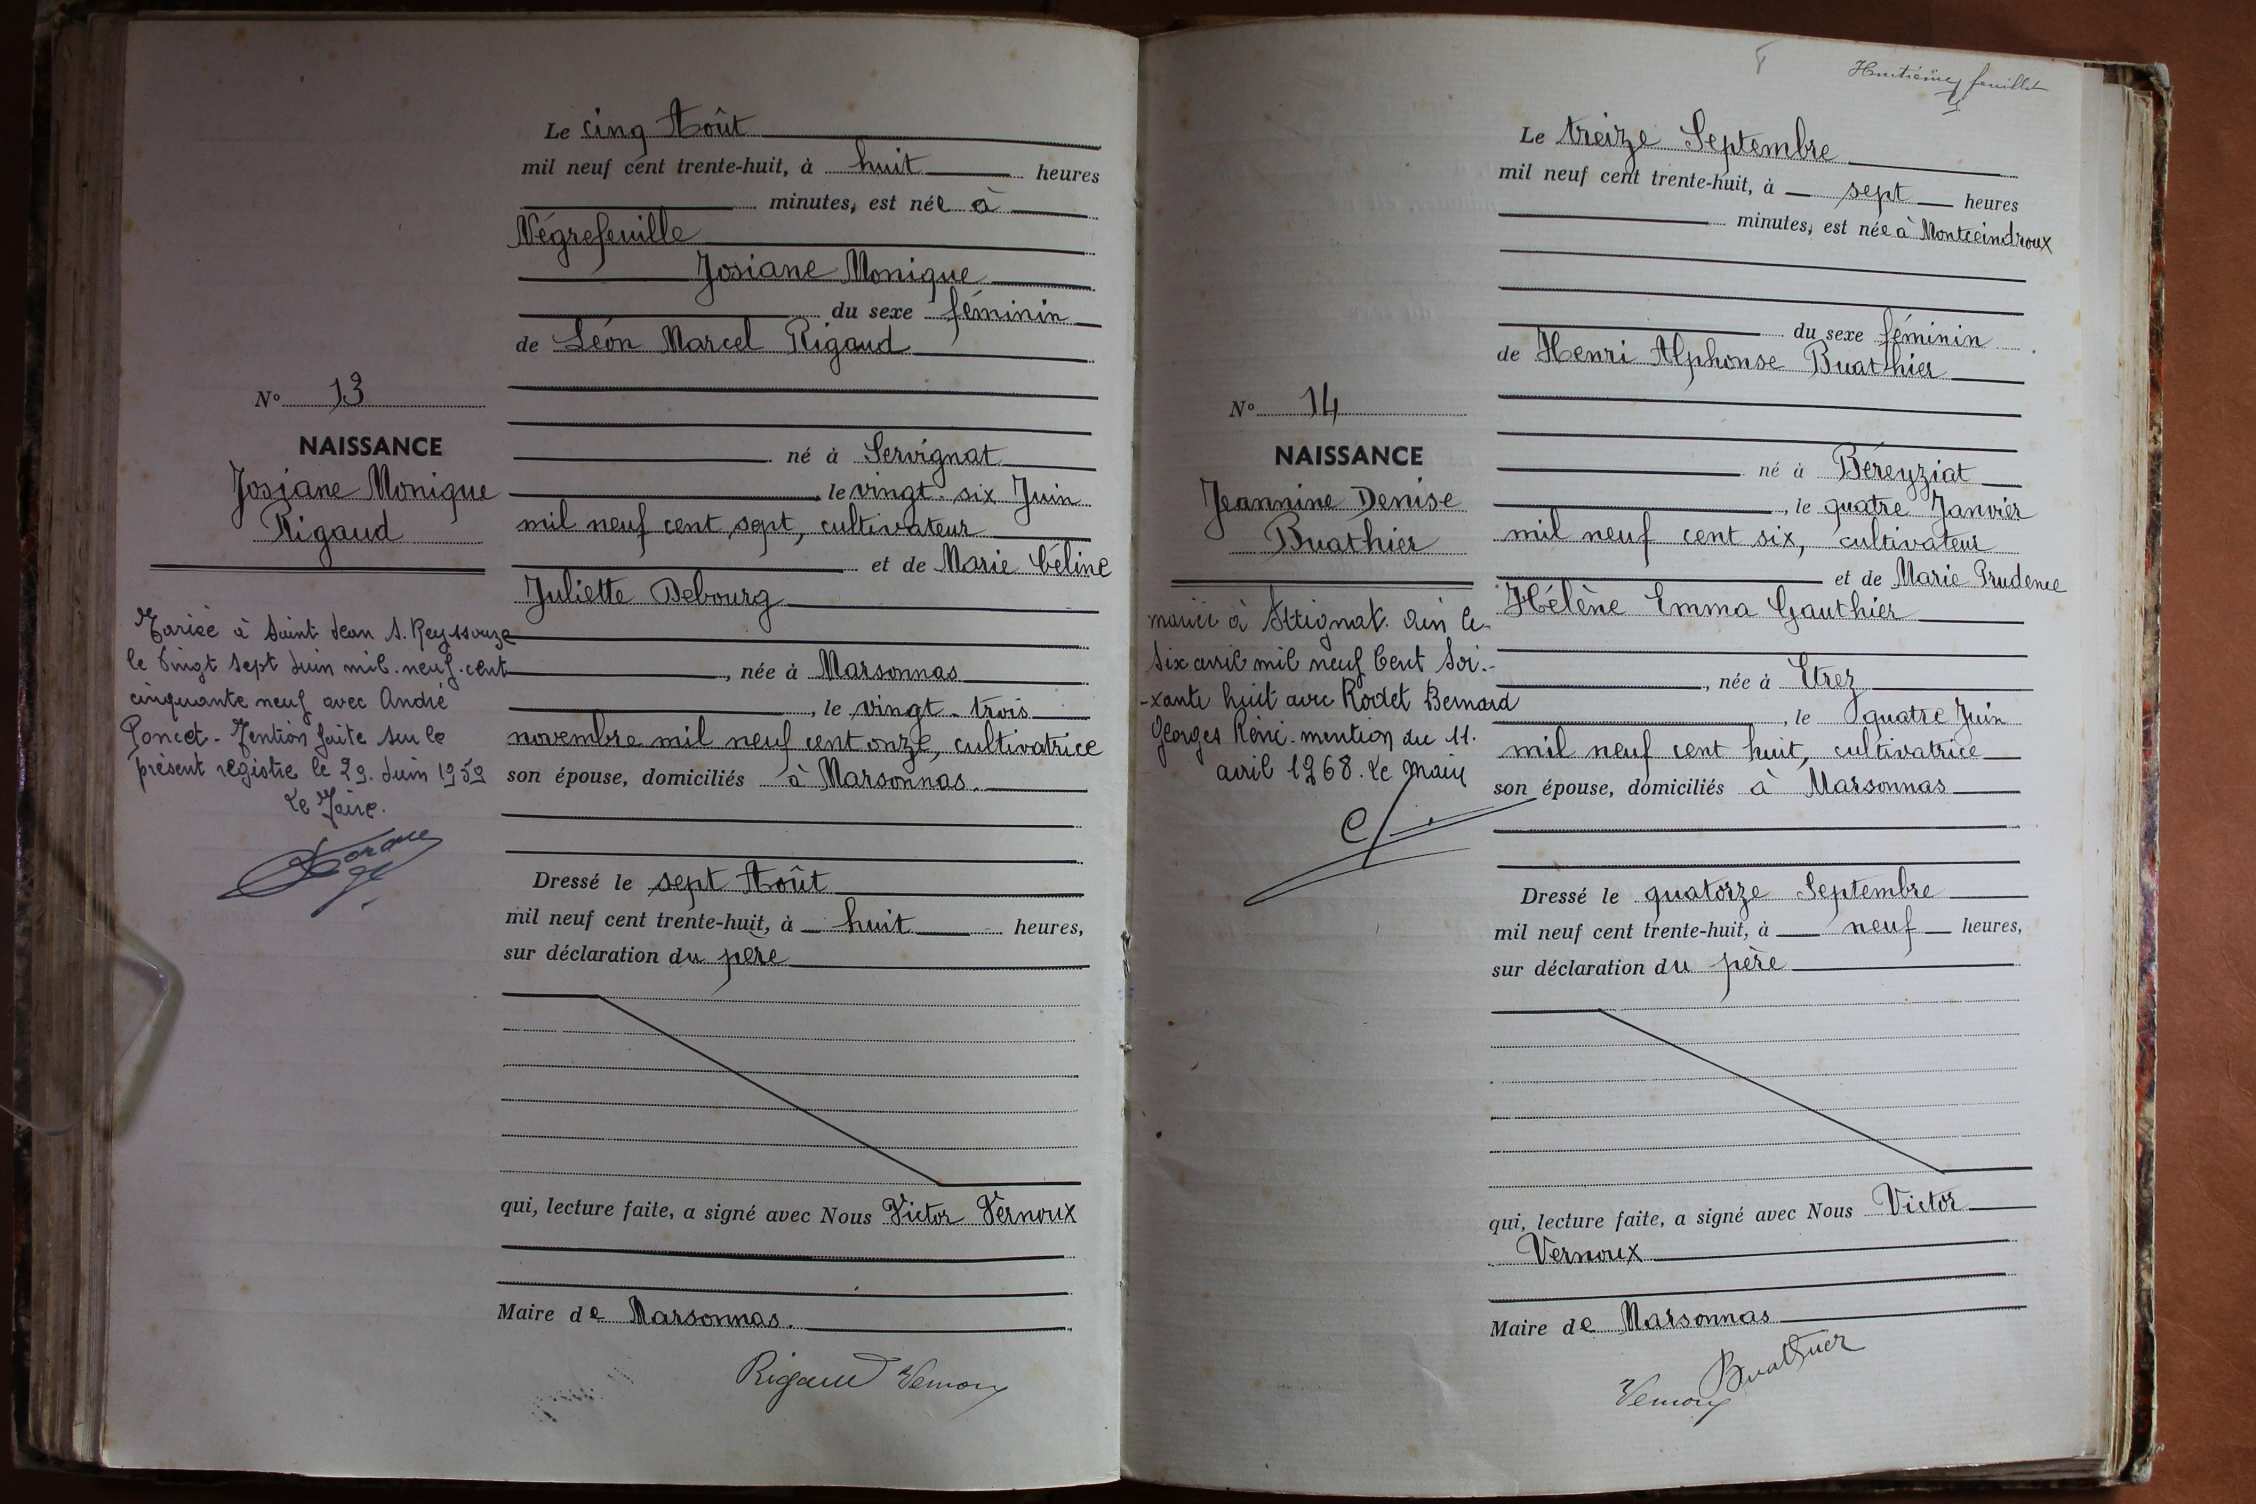 Le cinq Août
mil neuf cent trente-huit, à huit heures
minutes, est née à
Négrefeuille
Josiane Monique
du sexe féminin
de Léon Marcel Rigaud
né à Servignat
, le vingt-six Juin
mil neuf cent sept, cultivateur
et de Marie Céline
Juliette Debourg
, née à Marsonnas
, le vingt-trois
novembre mil neuf cent onze, cultivatrice
son épouse, domiciliés à Marsonnas.
Dressé le sept Août
mil neuf cent trente-huit, à huit heures,
sur déclaration du père
qui, lecture faite, a signé avec Nous Victor Vernoux
Maire de Marsonnas.
Rigaud Vernoux
No 13
NAISSANCE
Josiane Monique
Rigaud
Mariée à Saint Jean s. Reyssouze
le vingt sept Juin mil-neuf-cent
cinquante neuf avec André
Poncet - Mention faite sur le
présent registre le 29 Juin 1959
Le Maire.
Huitième feuillet
Le treize Septembre
mil neuf cent trente-huit, à sept heures
minutes, est née à Montceindroux
du sexe féminin
de Henri Alphonse Buathier
né à Béreyziat
, le quatre Janvier
mil neuf cent six, cultivateur
et de Marie Prudence
Hélène Emma Gauthier
, née à Etrez
, le quatre Juin
mil neuf cent huit, cultivatrice
son épouse, domiciliés à Marsonnas
Dressé le quatorze Septembre
mil neuf cent trente-huit, à neuf heures,
sur déclaration du père
qui, lecture faite, a signé avec Nous Victor
Vernoux
Maire de Marsonnas
Buathier
Vernoux
No 14
NAISSANCE
Jeannine Denise
Buathier
mariée à Attignat. Ain le
six avril mil neuf cent soi-
-xante huit avec Rodet Bernard
Georges Réné. mention du 11.
avril 1968. Le Maire